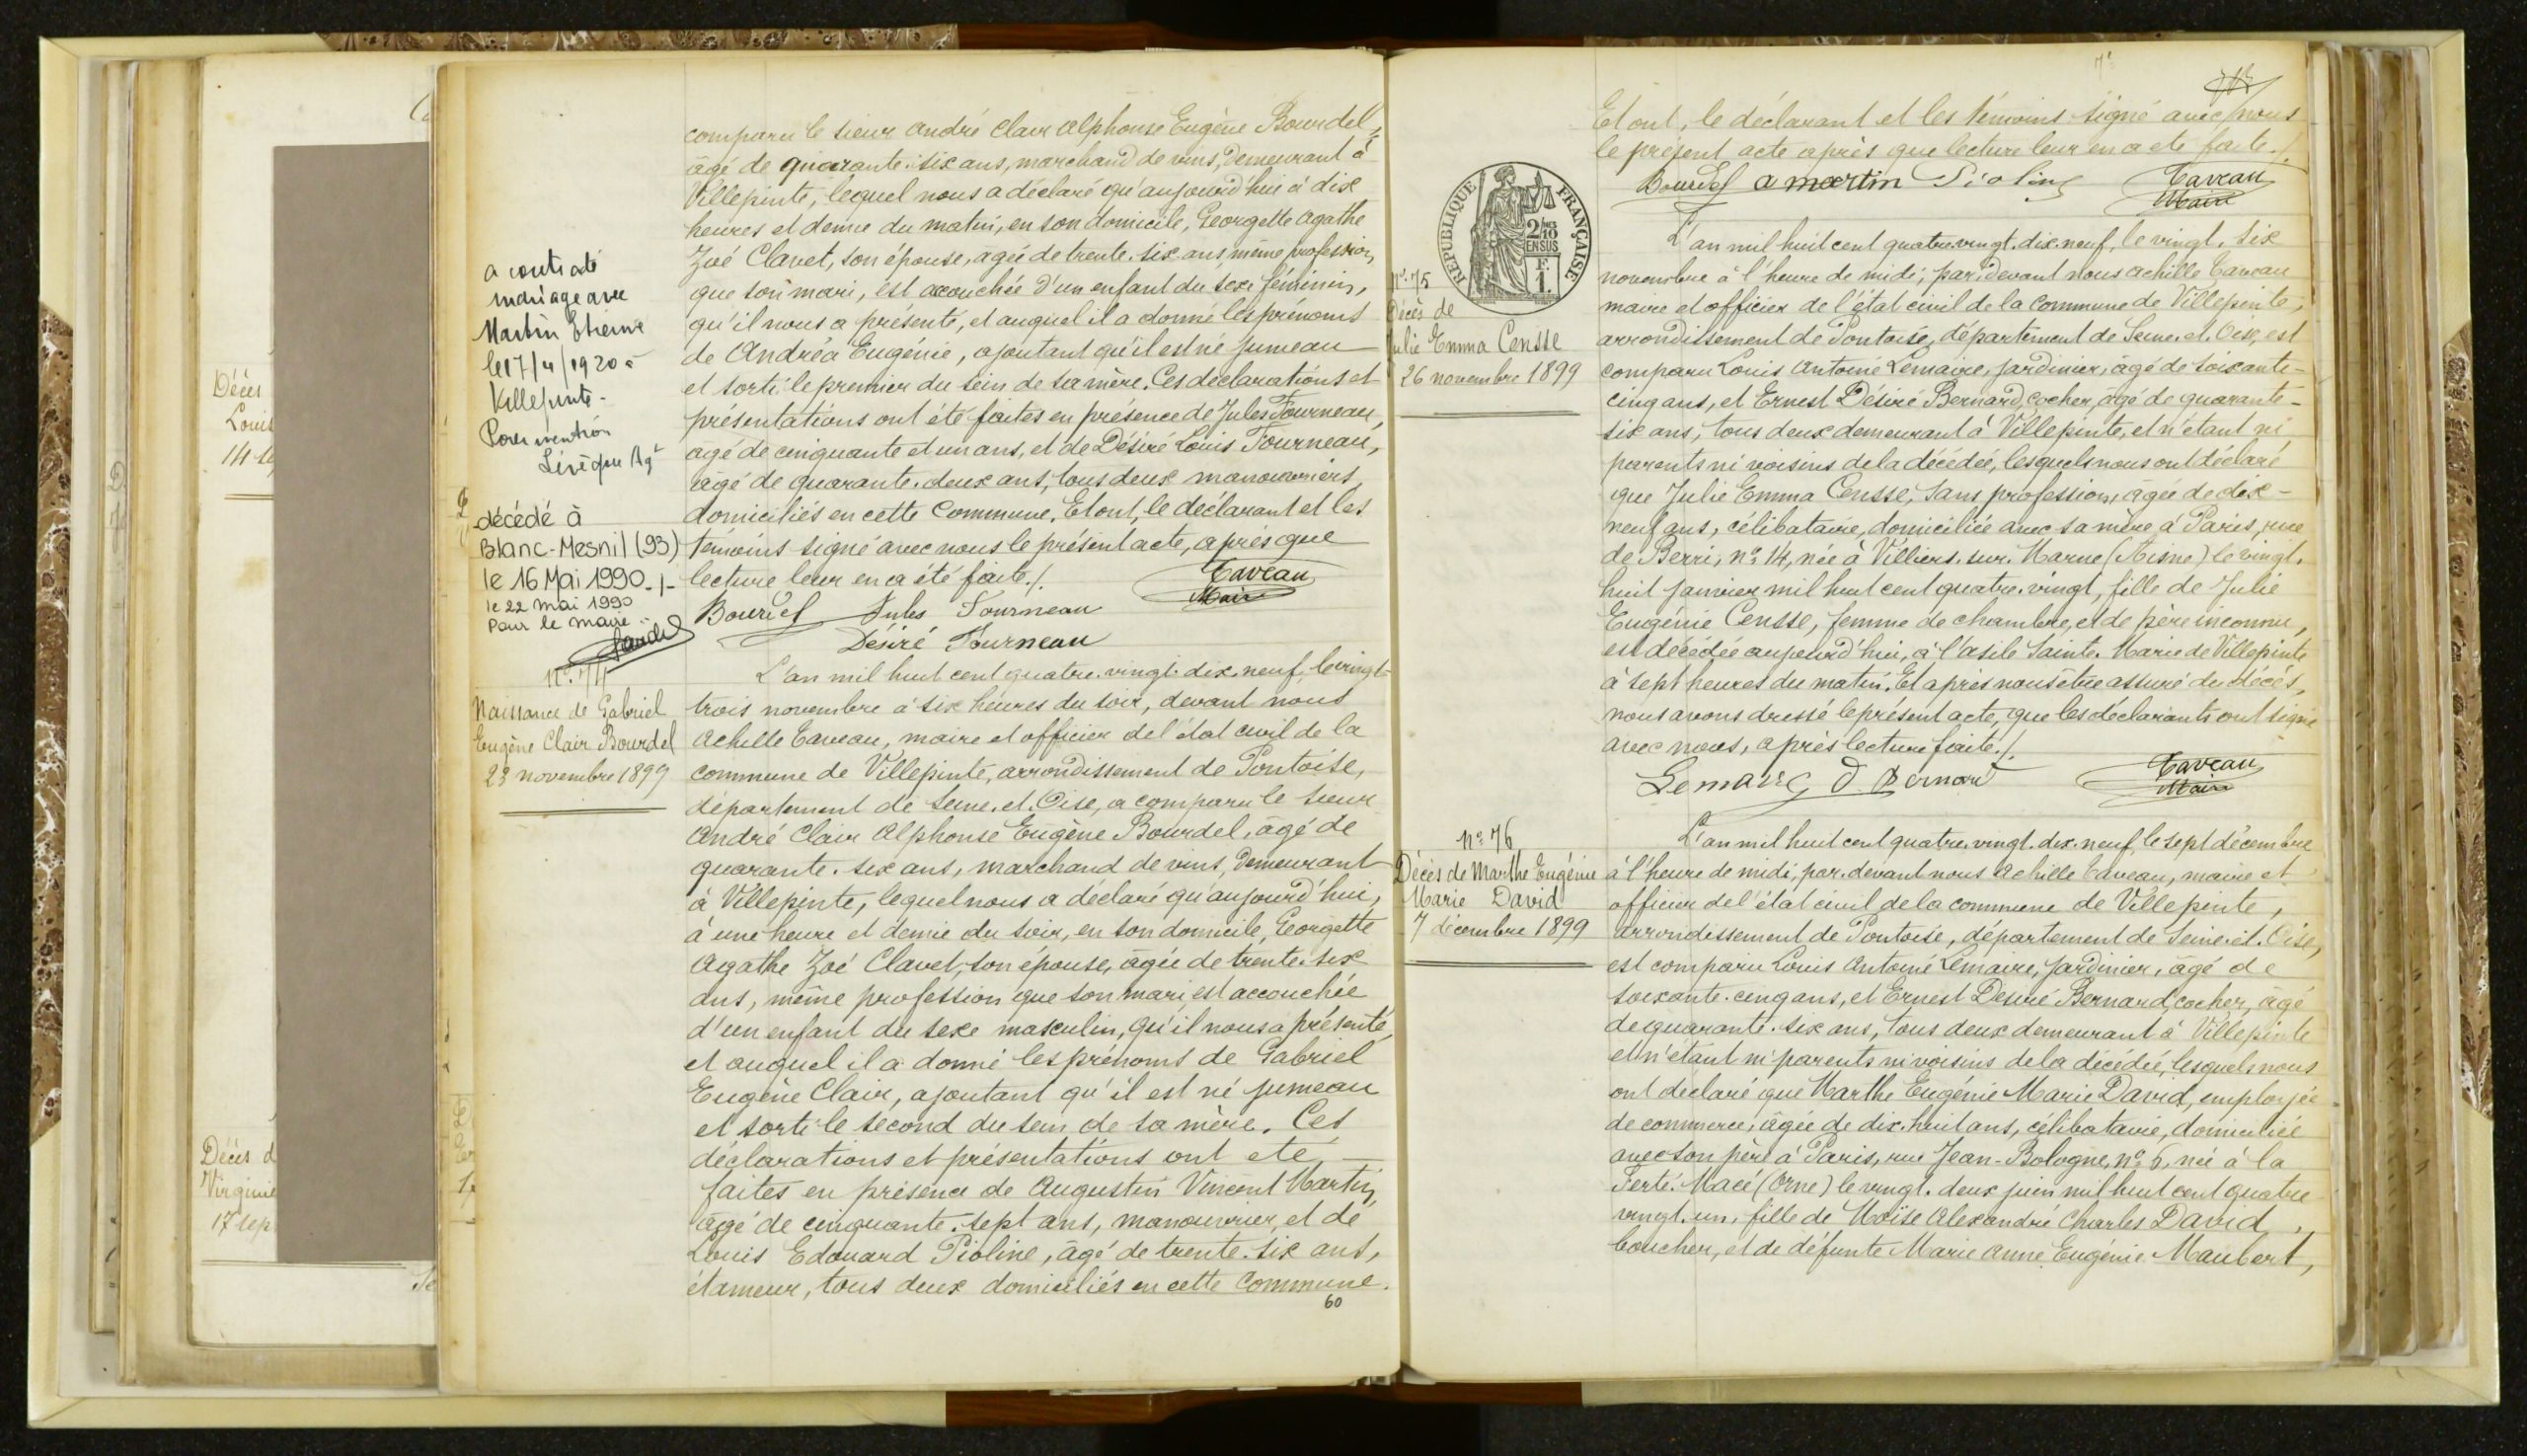 Décès
Louis
14 se
Décès d
Virginie
17 sep
a contracté
mariage avec
Martin Etienne
le 17/4/1920 à
Villepinte -
Pour mention
décédé à
Blanc-Mesnil (93)
le 16 Mai 1990 -/-
le 22 mai 1990
Pour le maire :
comparu le sieur André Clair Alphonse Eugène Bourdel,
âgé de quarante-six ans, marchand de vins, demeurant à
Villepinte, lequel nous a déclaré qu'aujourd'hui à dix
heures et demie du matin, en son domicile, Georgette Agathe
Zoé Clavet, son épouse, âgée de trente-six ans, même profession,
que son mari, est accouchée d'un enfant du sexe féminin,
qu'il nous a présenté, et auquel il a donné les prénoms
de Andréa Eugénie, ajoutant qu'il est né jumeau
et sorti le premier du sein de sa mère. Ces déclarations et
présentations ont été faites en présence de Jules Fourneau,
âgé de cinquante et un ans, et de Désiré Louis Fourneau,
âgé de quarante-deux ans, tous deux manouvriers
domiciliés en cette Commune. Et ont, le déclarant et les
témoins signé avec nous le présent acte, après que
lecture leur en a été faite./.
Bourdel Jules Fourneau Taveau
Maire
Désiré Fourneau
N° 74
Naissance de Gabriel
Eugène Clair Bourdel
23 novembre 1899
L'an mil huit cent quatre-vingt-dix-neuf, le vingt-
trois novembre à six heures du soir, devant nous
Achille Taveau, maire et officier de l'état civil de la
commune de Villepinte, arrondissement de Pontoise,
département de Seine-et-Oise, a comparu le sieur
André Clair Alphonse Eugène Bourdel, âgé de
quarante-six ans, marchand de vins, demeurant
à Villepinte, lequel nous a déclaré qu'aujourd'hui,
à une heure et demie du soir, en son domicile, Georgette
Agathe Zoé Clavet, son épouse, âgée de trente-six
ans, même profession que son mari est accouchée
d'un enfant du sexe masculin, qu'il nous a présenté,
et auquel il a donné les prénoms de Gabriel
Eugène Clair, ajoutant qu'il est né jumeau
et sorti le second du sein de sa mère. Ces
déclarations et présentations ont été
faites en présence de Augustin Vincent Martin,
âgé de cinquante-sept ans, manouvrier, et de
Louis Edouard Pioline, âgé de trente-six ans,
étameur, tous deux domiciliés en cette Commune.
60
Et ont, le déclarant et les témoins signé avec nous
le présent acte après que lecture leur en a été faite./.
Bourdel a martin Pioline Taveau
Maire
REPUBLIQUE FRANÇAISE
2/10
EN SUS
1 F.
N° 75
Décès de
Julie Emma Censse
26 novembre 1899
L'an mil huit cent quatre-vingt-dix-neuf, le vingt-six
novembre à l'heure de midi, par-devant nous Achille Taveau
maire et officier de l'état civil de la commune de Villepinte,
arrondissement de Pontoise, département de Seine-et-Oise, est
comparu Louis Antoine Lemaire, jardinier, âgé de soixante-
cinq ans, et Ernest Désiré Bernard, cocher, âgé de quarante-
six ans, tous deux demeurant à Villepinte, et n'étant ni
parents ni voisins de la décédée, lesquels nous ont déclaré
que Julie Emma Censse, sans profession, âgée de dix-
neuf ans, célibataire, domiciliée avec sa mère à Paris, rue
de Berri, n° 14, née à Villiers-sur-Marne (Aisne) le vingt-
huit janvier mil huit cent quatre-vingt, fille de Julie
Eugénie Censse, femme de chambre, et de père inconnu,
est décédée aujourd'hui, à l'asile Sainte-Marie de Villepinte
à sept heures du matin. Et après nous être assuré du décès,
nous avons dressé le présent acte, que les déclarants ont signé
avec nous, après lecture faite./.
Lemaire D. Bernard Taveau
Maire
N° 76
Décès de Marthe Eugénie
Marie David
7 décembre 1899
L'an mil huit cent quatre-vingt-dix-neuf, le sept décembre
à l'heure de midi, par-devant nous Achille Taveau, maire et
officier de l'état civil de la commune de Villepinte,
arrondissement de Pontoise, département de Seine-et-Oise,
est comparu Louis Antoine Lemaire, jardinier, âgé de
soixante-cinq ans, et Ernest Désiré Bernard, cocher, âgé
de quarante-six ans, tous deux demeurant à Villepinte
et n'étant ni parents ni voisins de la décédée, lesquels nous
ont déclaré que Marthe Eugénie Marie David, employée
de commerce, âgée de dix-huit ans, célibataire, domiciliée
avec son père à Paris, rue Jean-Bologne, n° 6, née à la
Ferté-Macé (Orne) le vingt-deux juin mil huit cent quatre
vingt-un, fille de Moïse Alexandre Charles David,
boucher, et de défunte Marie Anne Eugénie Maubert,